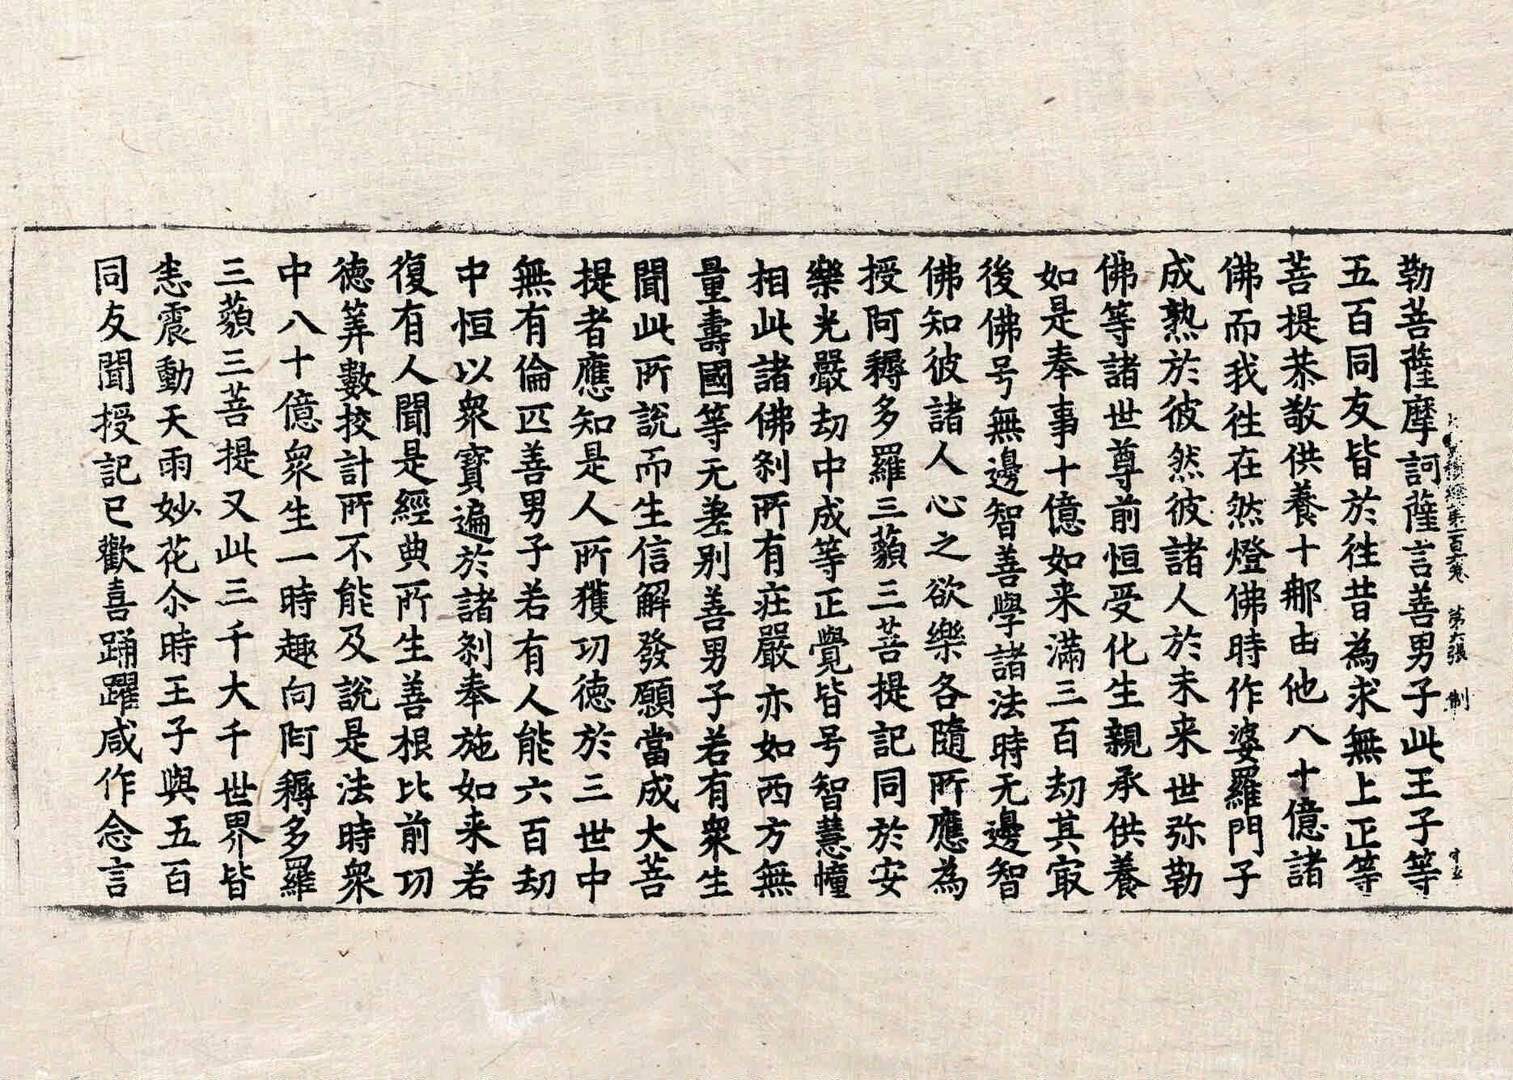 勒菩薩摩訶薩言善男子此王子等
五百同友皆於往昔為求無上正等
菩提恭敬供養十那由他八十億諸
佛而我往在然燈佛時作婆羅門子
成熟於彼然彼諸人於未来世弥勒
佛等諸世尊前恒受化生親承供養
如是奉事十億如来滿三百劫其㝡
後佛号無邊智善學諸法時无邊智
佛知彼諸人心之欲樂各隨所應為
授阿耨多羅三藐三菩提記同於安
樂光嚴劫中成等正覺皆号智慧幢
相此諸佛刹所有莊嚴亦如西方無
量壽國等无差别善男子若有衆生
聞此所說而生信解發願當成大菩
提者應知是人所獲功德於三世中
無有倫匹善男子若有人能六百劫
中恒以衆寶遍於諸刹奉施如来若
復有人聞是經典所生善根比前功
德筭數挍計所不能及說是法時衆
中八十億衆生一時趣向阿耨多羅
三藐三菩提又此三千大千世界皆
悉震動天雨妙花尒時王子與五百
同友聞授記已歡喜踊躍咸作念言
經第一百六卷 第六張 制